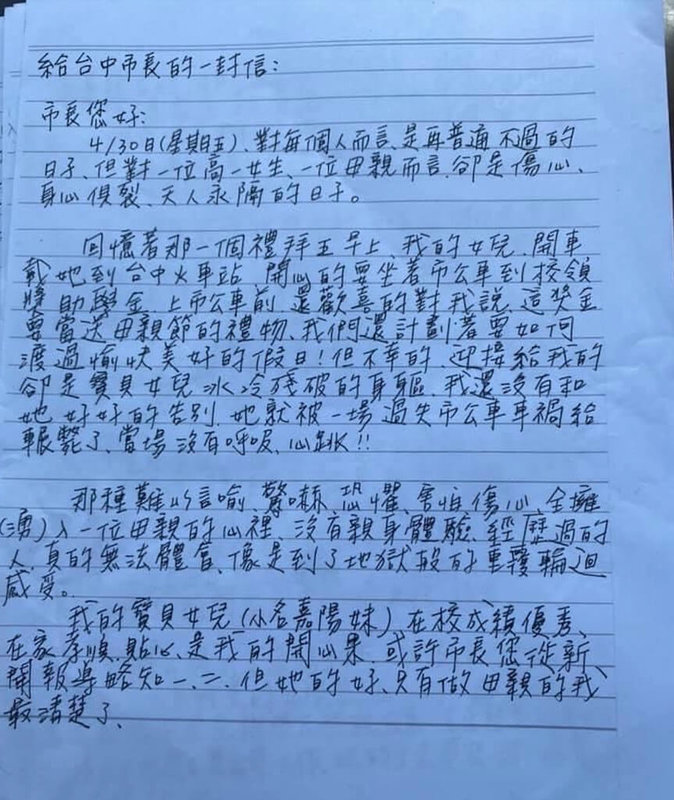 給台中市長的一封信：
市長您好：
4/30日(星期五)、對每個人而言、是再普通不過的
日子、但對一位高一女生、一位母親而言、卻是傷心、
身心俱裂、天人永隔的日子。
回憶著那一個禮拜五早上、我的女兒、開車
載她到台中火車站、開心的要坐著市公車到校領
獎助學金、上市公車前、還歡喜的對我說、這獎金
要當送母親節的禮物、我們還計劃著要如何
渡過愉快美好的假日！但不幸的、迎接給我的
卻是寶貝女兒冰冷殘破的身軀、我還沒有和
她好好的告別、她就被一場過失市公車車禍給
輾斃了、當場沒有呼吸、心跳!!
那種難以言喻、驚嚇、恐懼、害怕、傷心、全擁
(湧)入一位母親的心裡、沒有親身體驗、經歷過的
人、真的無法體會、像是到了地獄般的重覆輪迴
感受。
我的寶貝女兒(小名嘉陽妹)、在校成績優秀、
在家孝順、貼心、是我的開心果、或許市長您從新
聞報導略知一、二、但她的好、只有做母親的我
最清楚了、